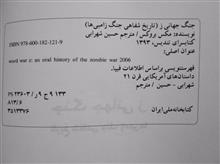 جنگ جهانی ز (تاریخ شفاهی جنگ زامبی‌ها)
نویسنده: مکس بروکس / مترجم حسین شهرابی
کتابسرای تندیس، ۱۳۹۳
978-600-182-121-9
عنوان اصلی:
word war z: an oral history of the zombie war 2006
فهرستنویسی براساس اطلاعات فیپا.
داستان‌های آمریکایی قرن ۲۱
شهرابی، حسین - مترجم
۹ ج ۹ ر / PZ ۳۶۰۳
۸۱۳/۶
۳۵۱۳۳۷۶
کتابخانه ملی ایران